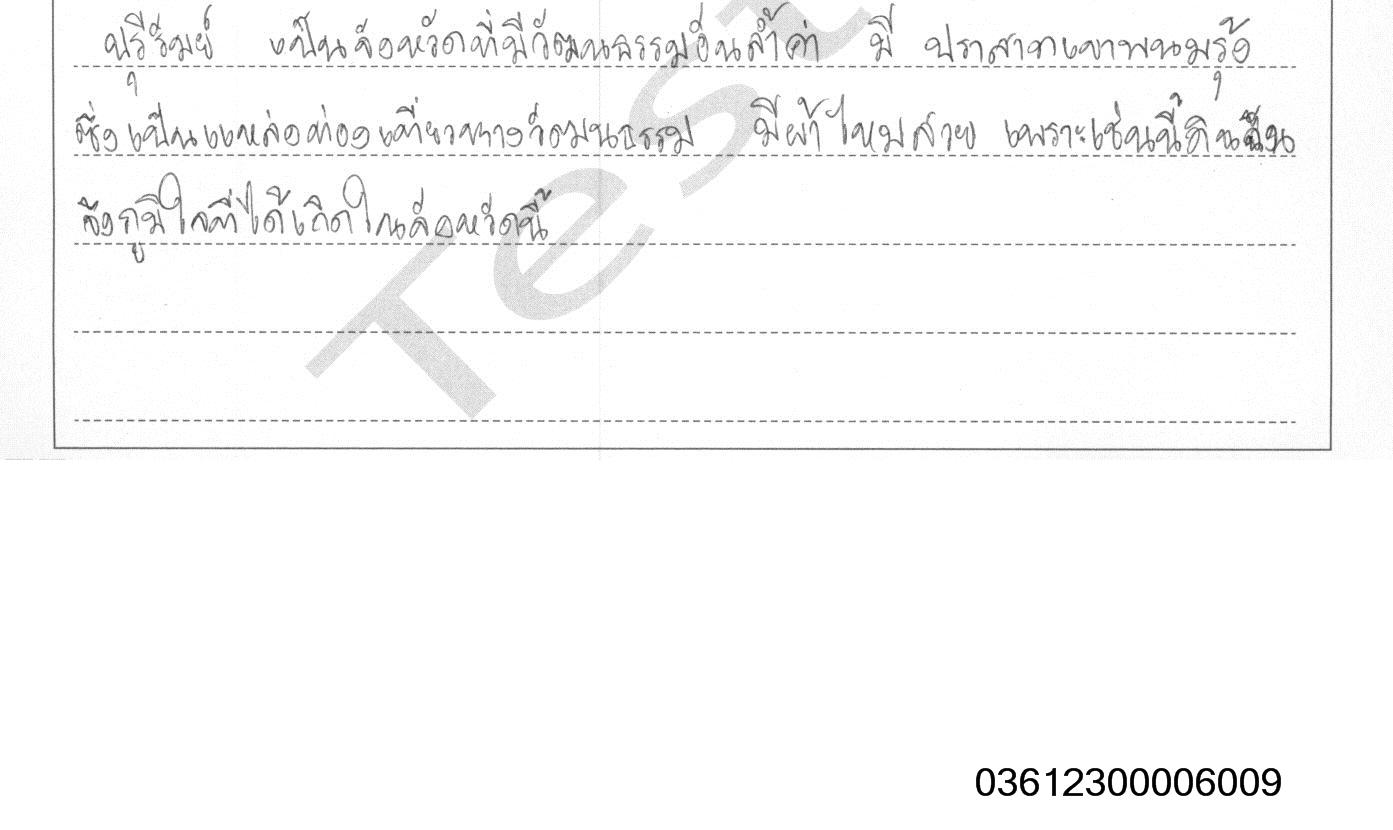 บุรีรัมย์ เป็นจังหวัดที่มีวัฒนธรรมอันล้ำค่า มี ปราสาทเขาพนมรุ้ง
ซึ่งเป็นแหล่งท่องเที่ยวทางวัฒนธรรม มีผ้าไหมสวย เพราะเช่นนี้ดิฉัน
จึงภูมิใจที่ได้เกิดในจังหวัดนี้
Test
03612300006009